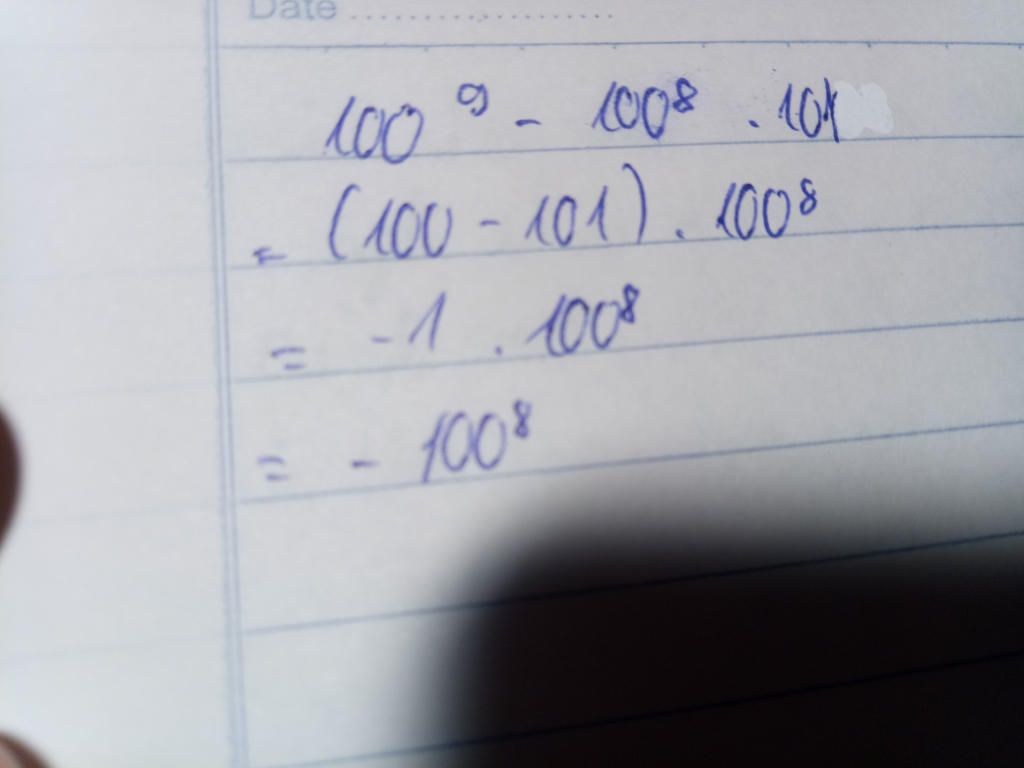 Date ....................
100⁹ - 100⁸ . 101
= (100 - 101) . 100⁸
= -1 . 100⁸
= - 100⁸